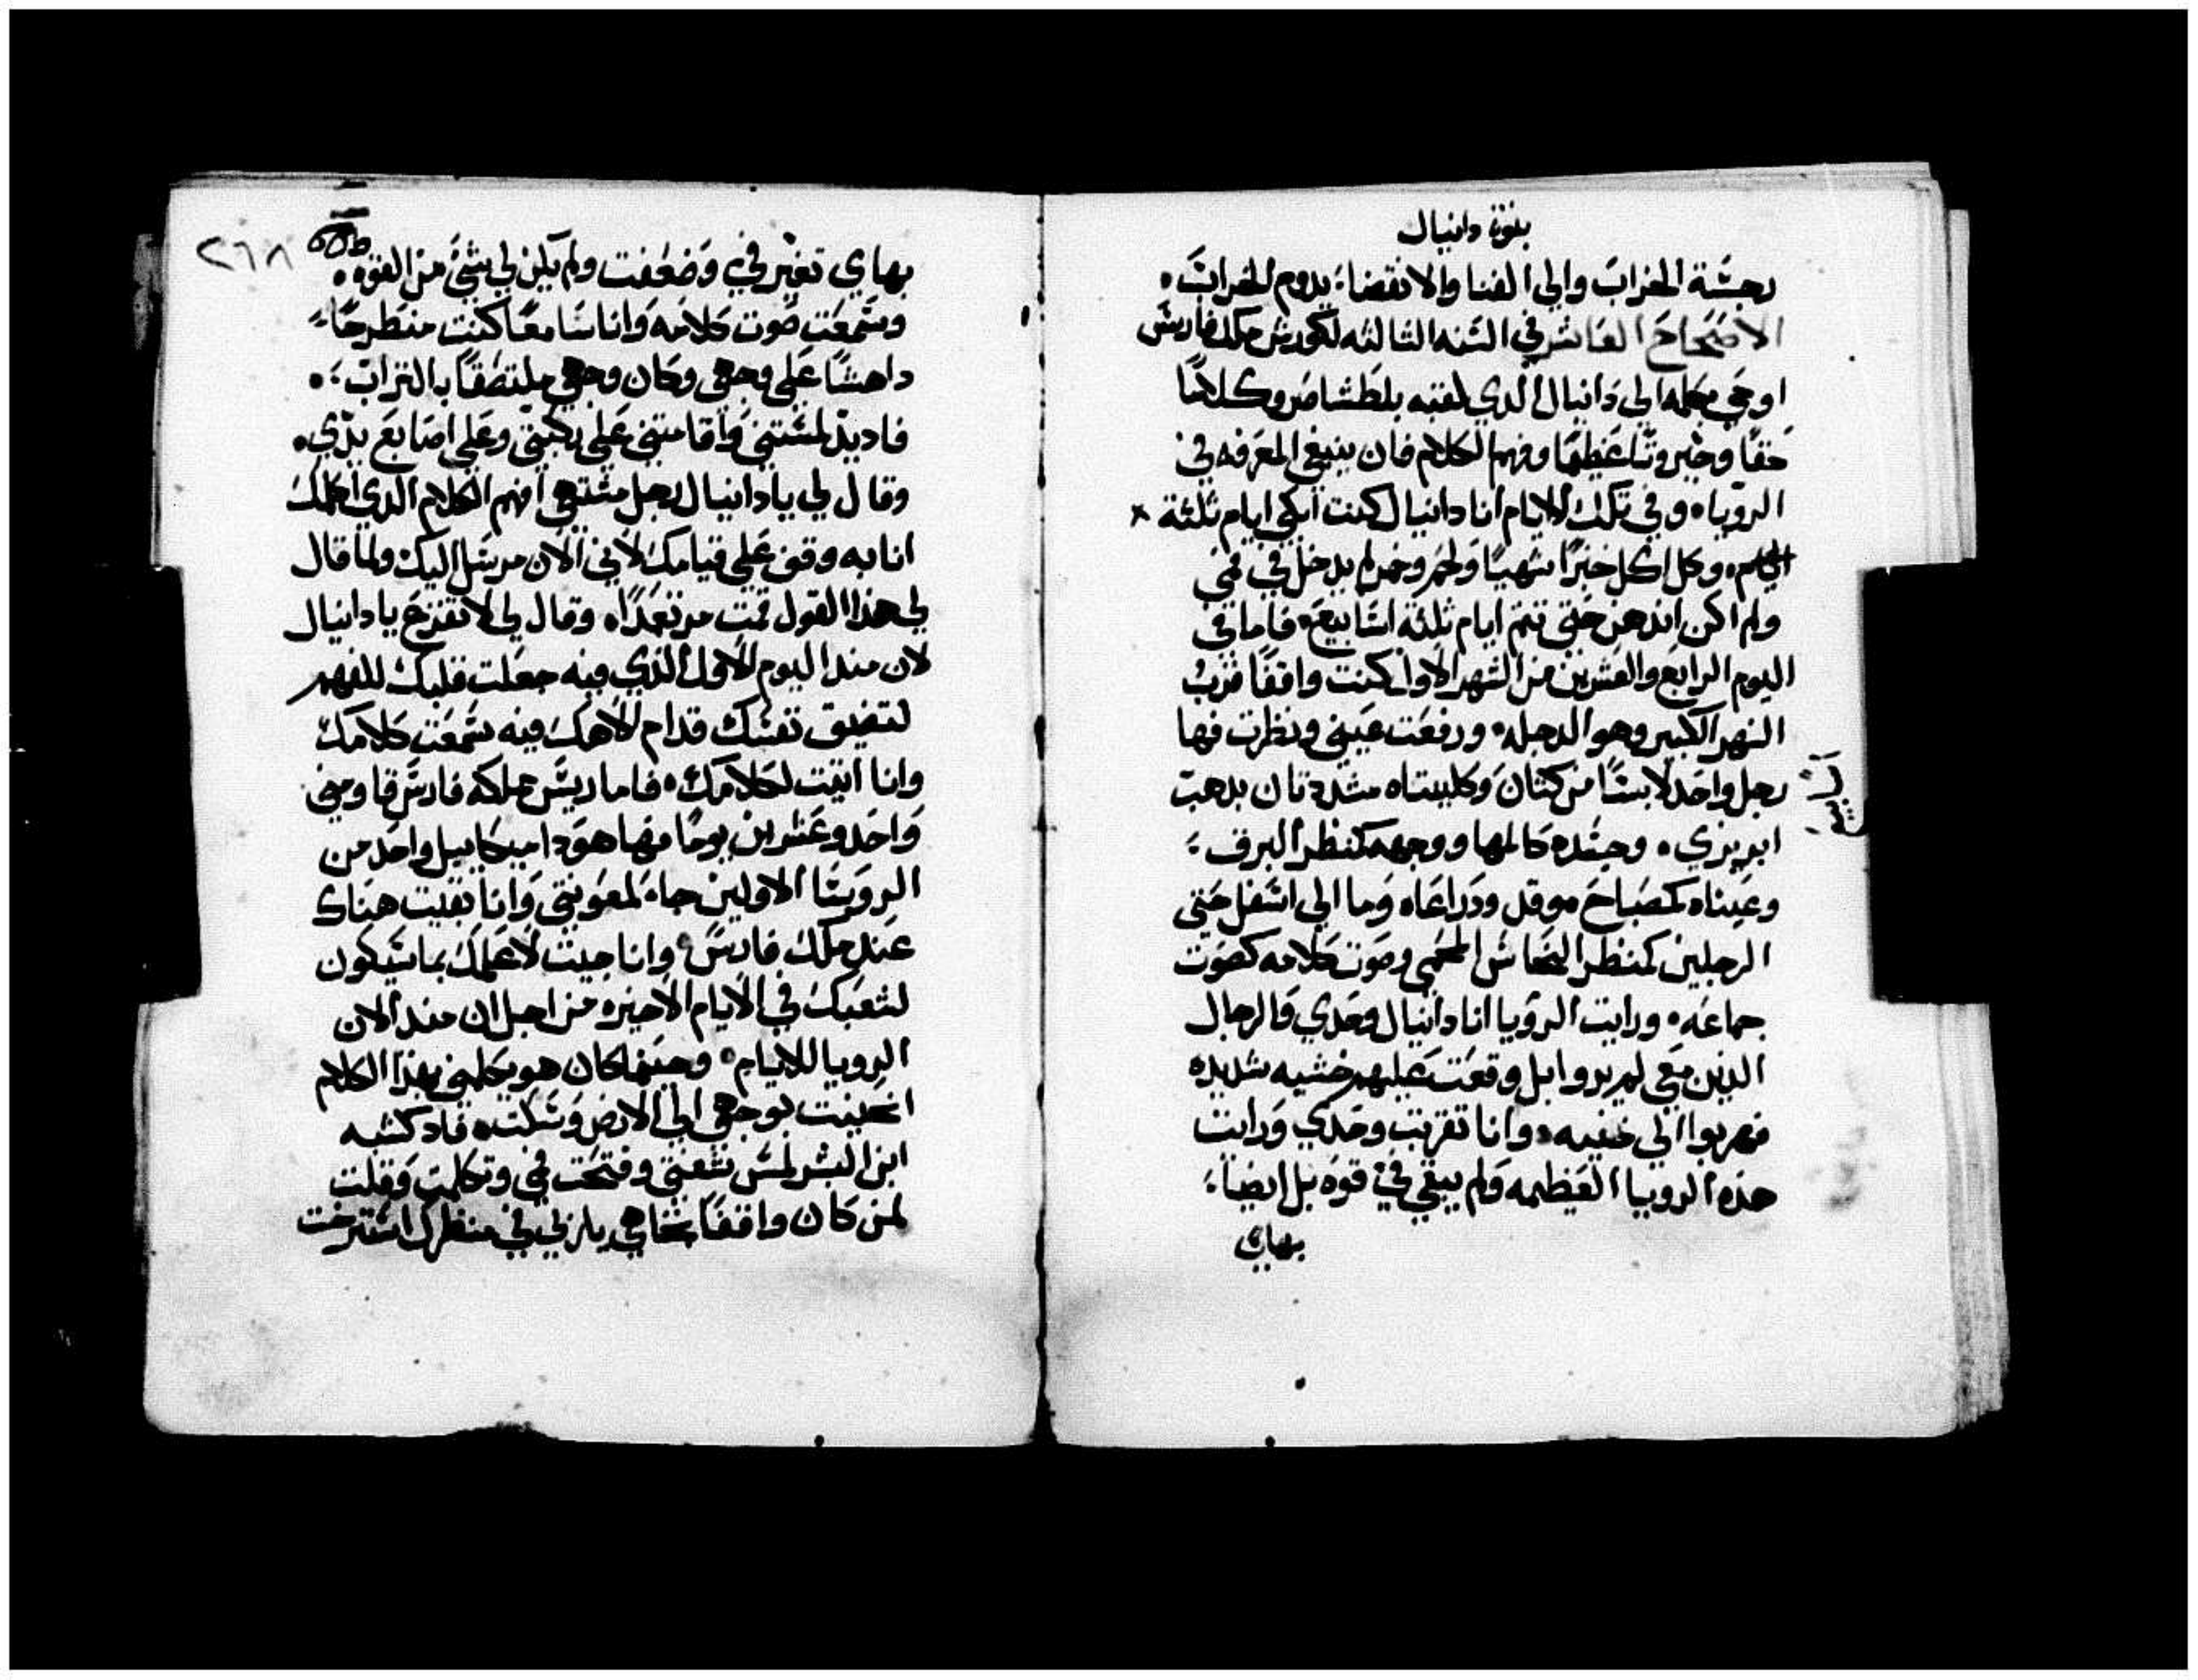 بنوة دانيال
رجسة الخراب والي الفنا والانقضا يدوم الخراب
الاصحاح العاشر في السنه الثالثه لكورش ملك فارس
اوحي بكلمه الي دانيال الدي لقبه بلطشاصر وكلامًا
حقًا وجبروتًا عظيمًا وفهم الكلام فان ينبغي المعرفه في
الرويا وفي تلك الايام انا دانيال كنت ابكي ايام ثلثة
وكل اكل خبزًا شهيًا ولحم وخمر لم يدخل في فمي
ولم اكن اندهن حتي تتم ايام ثلثة اسابيع فاما في
اليوم الرابع والعشرين من الشهر الاول كنت واقفًا قرب
النهر الكبير وهو الدجله ورفعت عيني ونظرت فها
رجل واحد لابسًا من كتان وكليتاه مشددتان بدهب
ابريزي وجسده كالمها ووجهه كمنظر البرق
وعيناه كمصباح موقد ودراعاه وما الي اسفل حتي
الرجلين كمنظر النحاس المحمي وصوت كلامه كصوت
جماعه ورايت الرويا انا دانيال وحدي والرجال
الدين معي لم يروا بل وقعت عليهم خشيه شديده
فهربوا الي خفيه وانا تقربت وحدي ورايت
هذه الرويا العظيمه ولم يبقي فيّ قوه بل ايضا
بهاي
٢٦٨
بهاي تغير فيّ وضعفت ولم يكن لي شيئ من القوه
وسمعت صوت كلامه وانا سامعًا كنت منطرحًا
داهشًا علي وجهي وكان وجهي ملتصقًا بالتراب
فاد يدّ لمستني واقامتني علي ركبتيّ وعلي اصابع يدّي
وقال لي يا دانيال رجل مشتهي افهم الكلام الدي اكلمك
انا به وقف علي قيامك لاني الان مرسل اليك ولما قال
لي هذا القول قمت مرتعدًا وقال لي لا تفزع يا دانيال
لان مند اليوم الاول الذي فيه جعلت قلبك للفهم
لتضيق نفسك قدام الاهك فيه سمعت كلامك
وانا اتيت لكلامك فاما ريس مملكه فارس قاومني
واحد وعشرين يومًا فها هودا ميكاييل واحد من
الروسا الاولين جاء لمعونتي وانا بقيت هناك
عند ملك فارس وانا جيت لاعلمك بما سيكون
لشعبك في الايام الاخيره من اجل ان مند الان
الرويا للايام وحينما كان هو يكلمني بهذا الكلام
انحنيت بوجهي الي الارض وسكت فاد كشبه
ابن البشر لمس شفتي وفتحت فمي وتكلمت وقلت
لمن كان واقفًا تجاهي يا ربي في منظرك استرخت